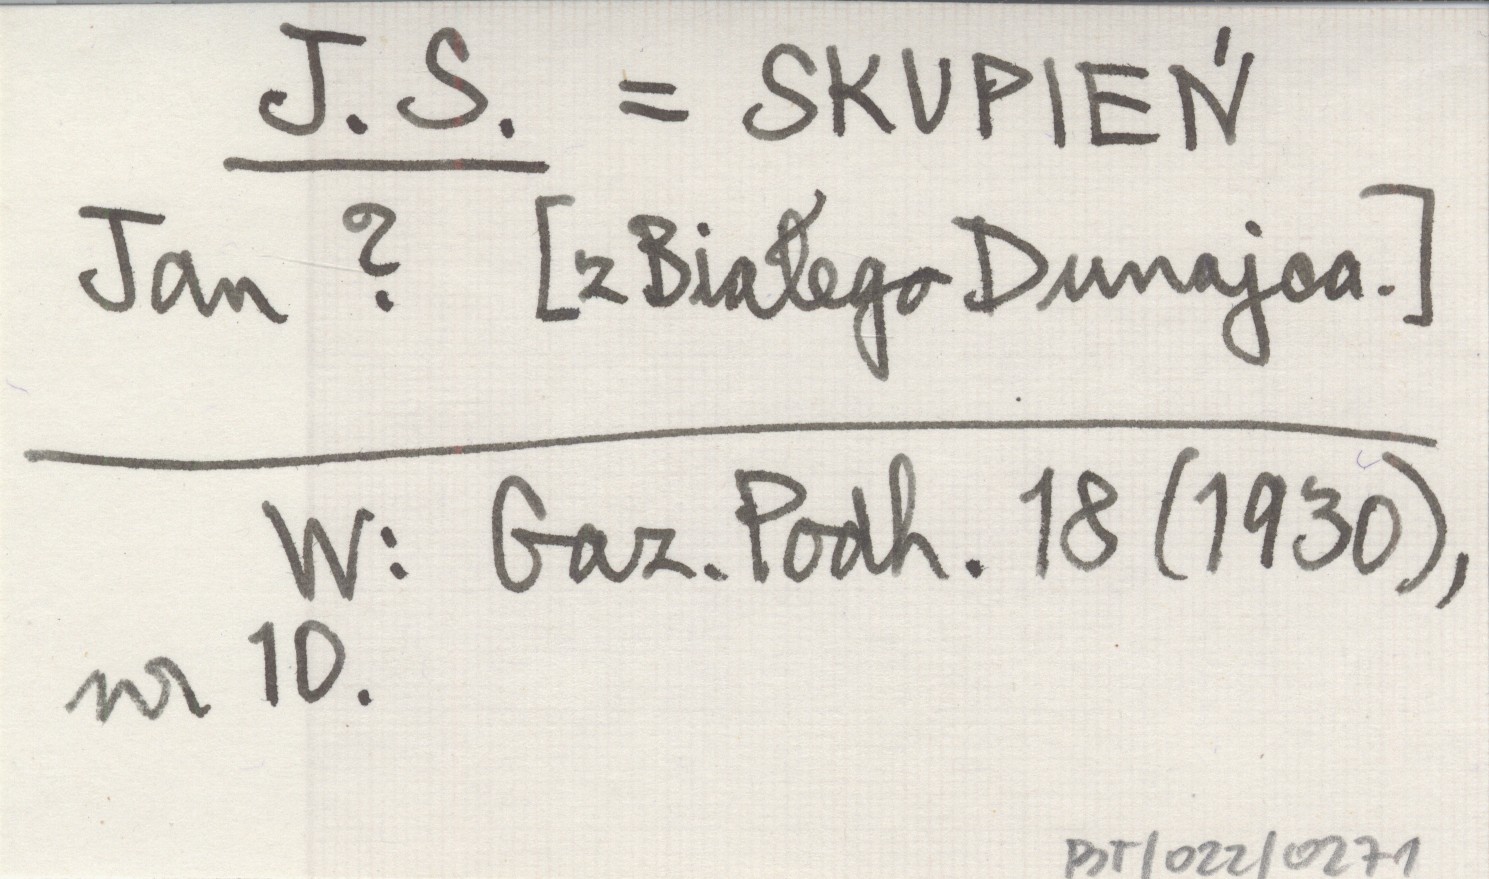 J.S. = SKUPIEŃ
Jan ? [z Białego Dunajca.]
W: Gaz. Podh. 18 (1930),
nr 10.
PBT/022/0271